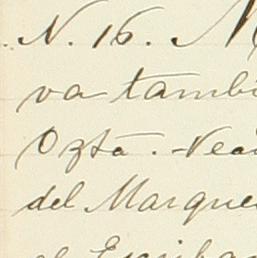 N. 16. M
va tambi
Ozta. Vea
del Marque
el Escriba